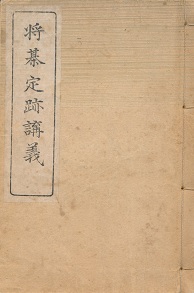 将棊定跡講義